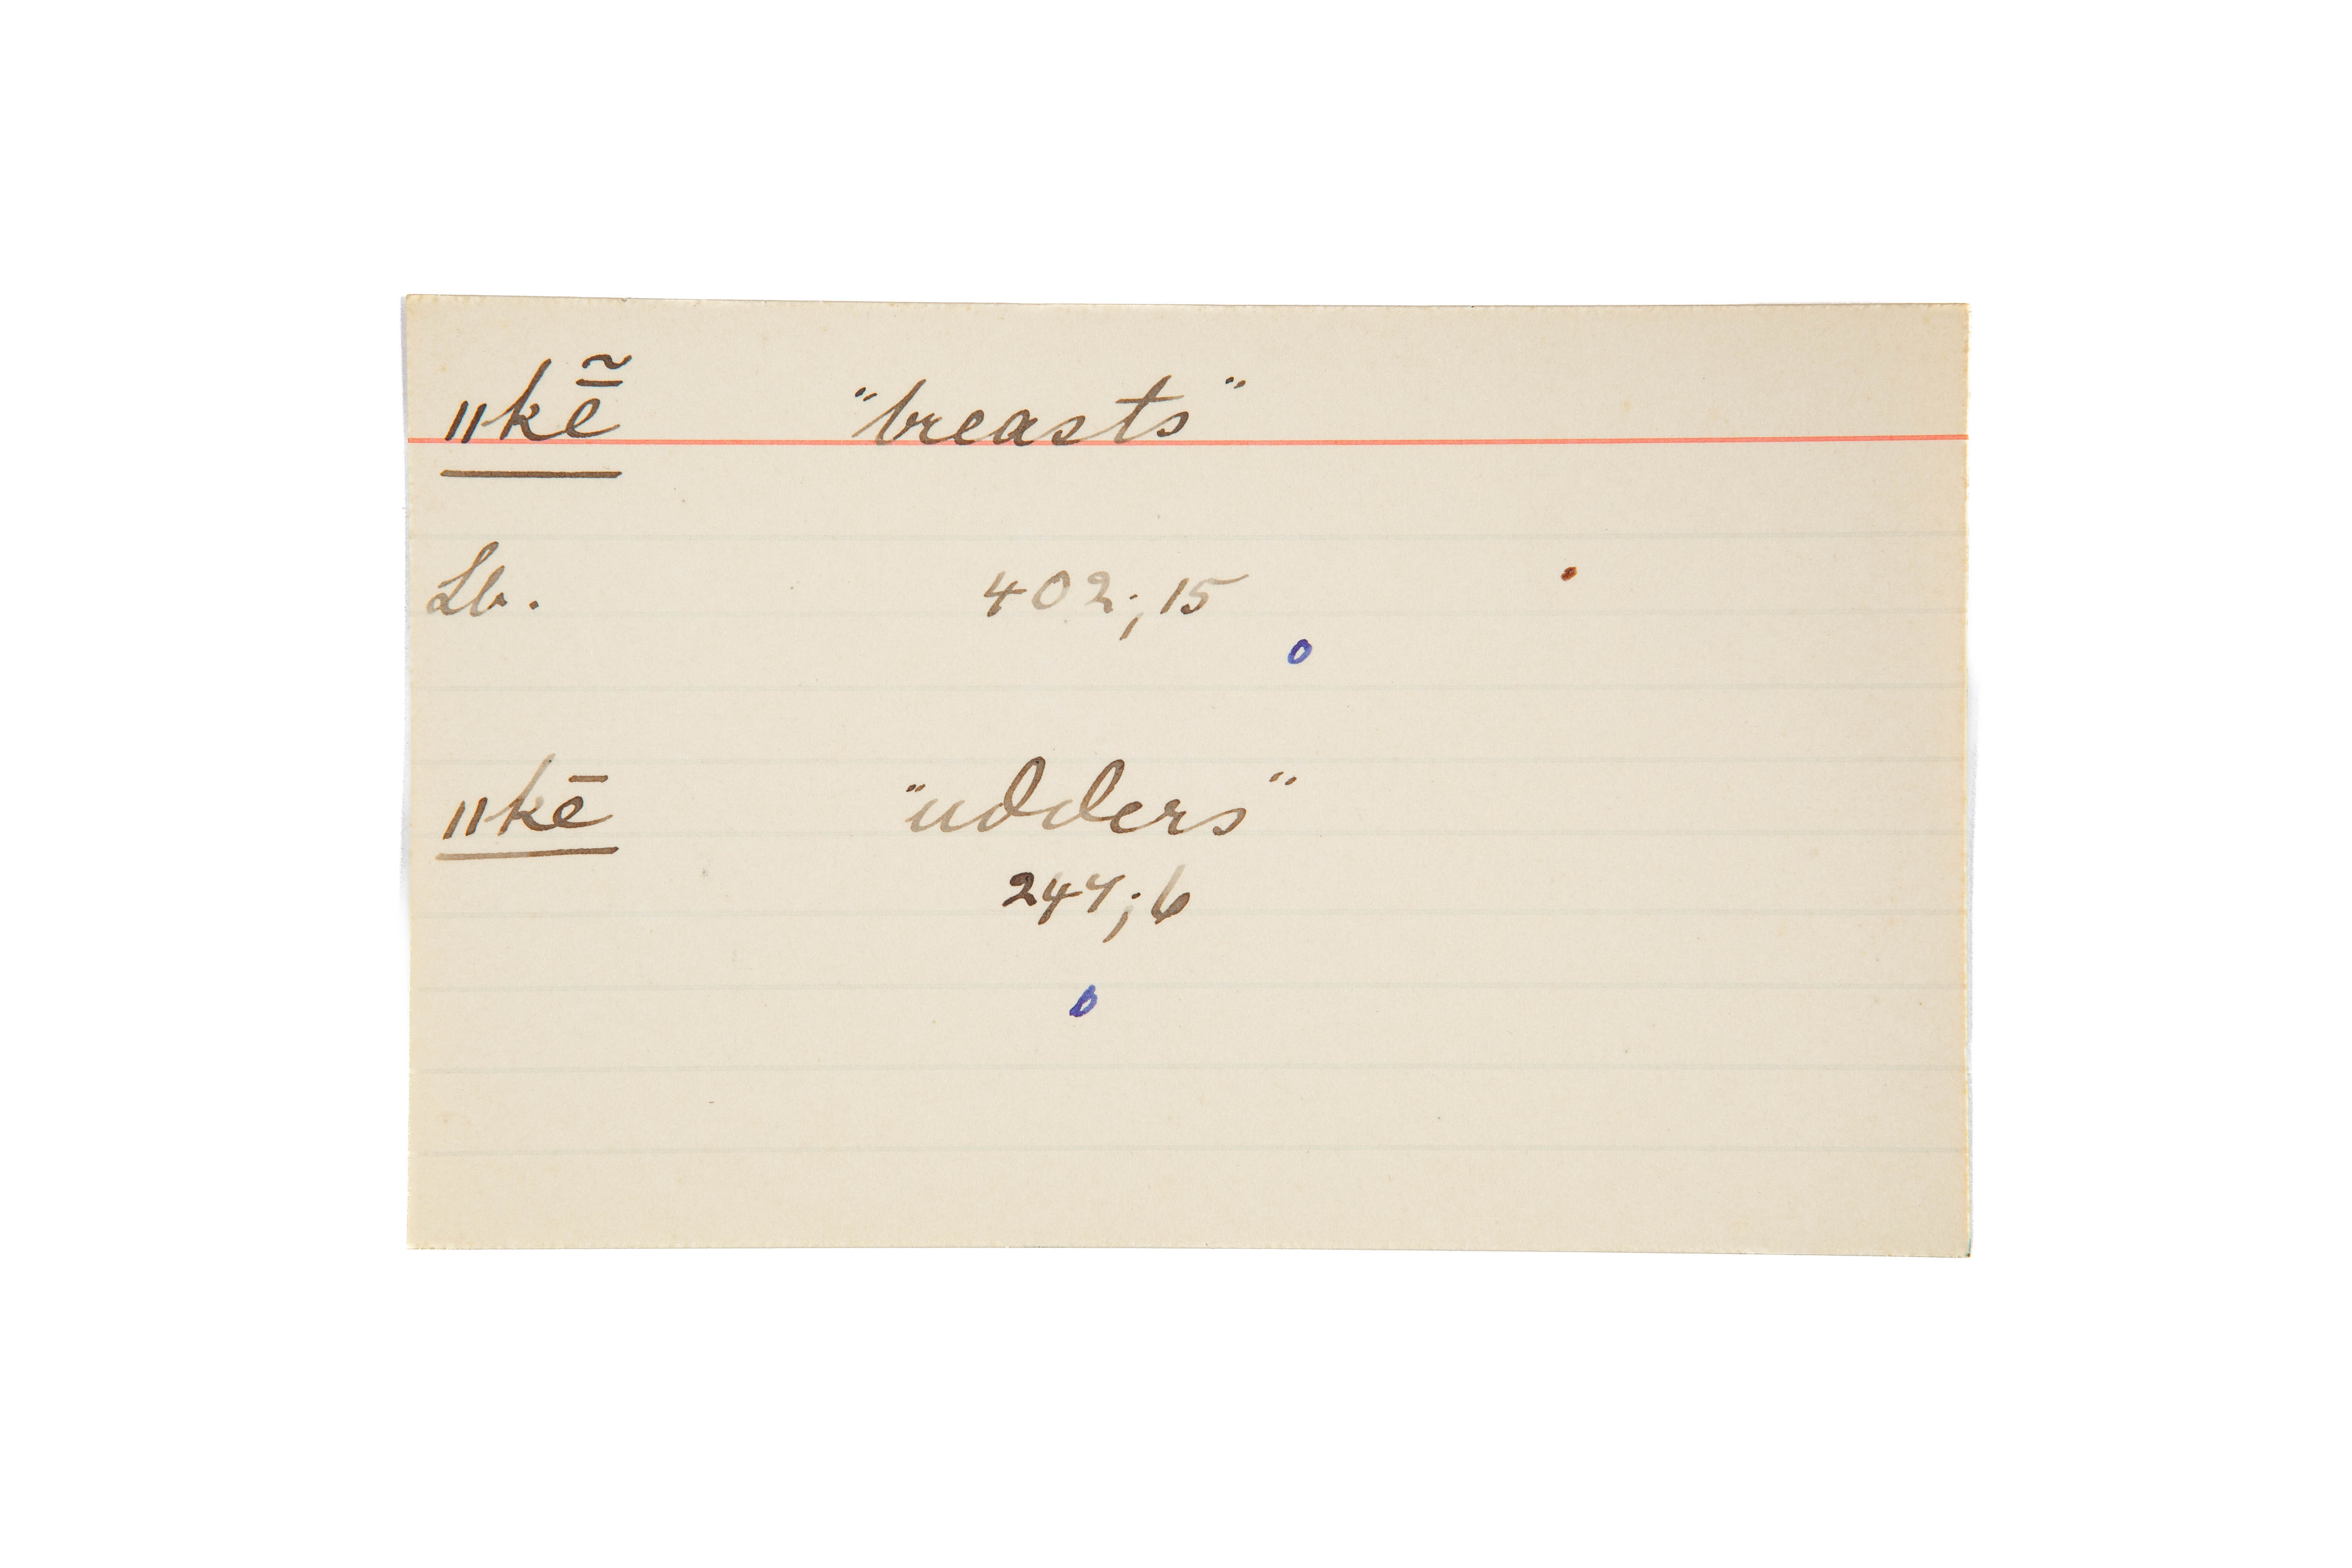 ǁkē̃ "breasts"
Lb. 402; 15
ǁkē "udders"
247; 6